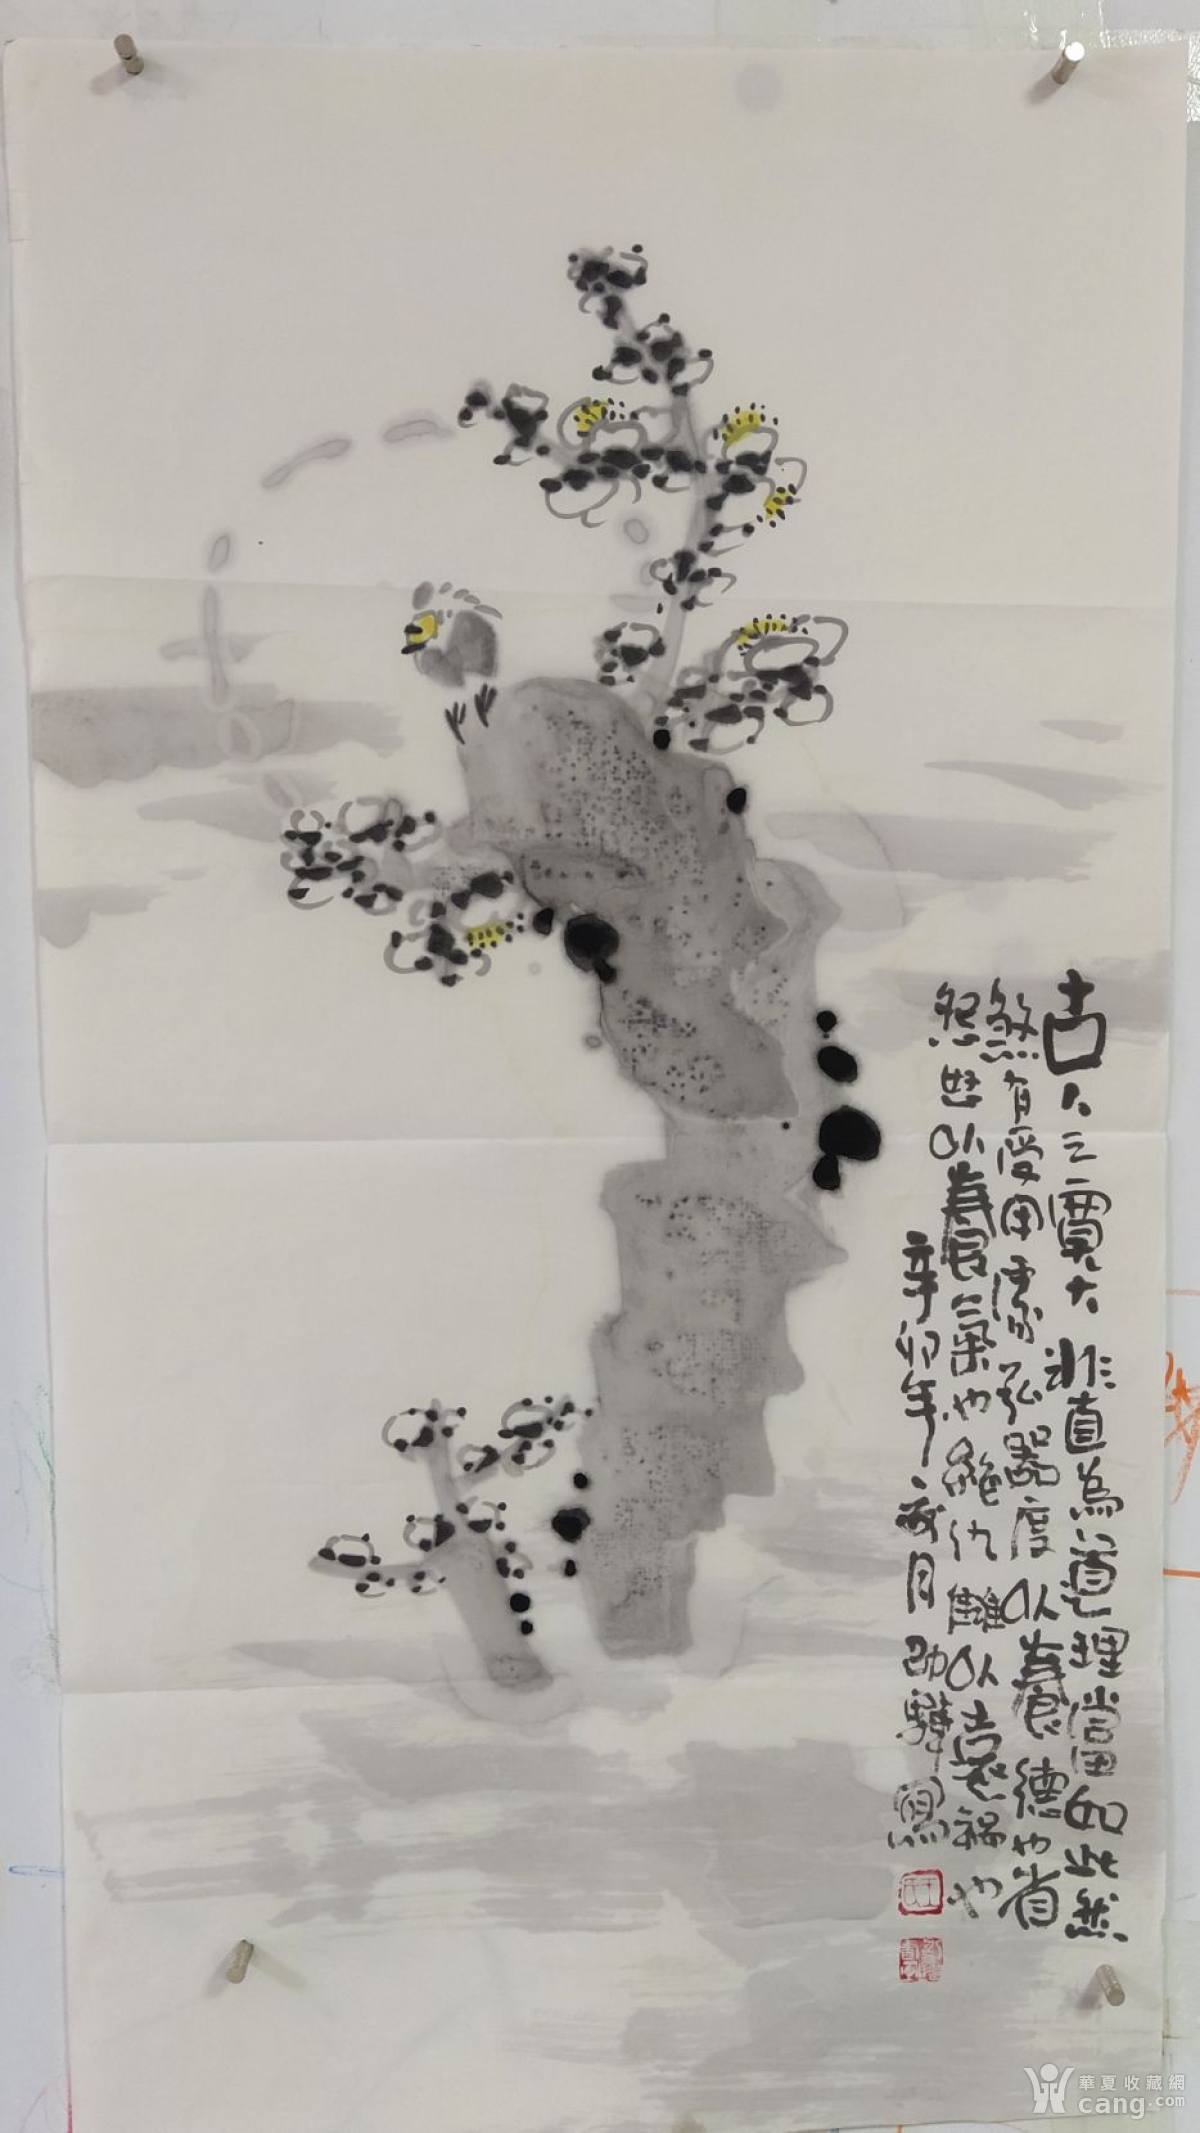 古人之寬大非直為道理當如此然
煞有受用處弘器度以養德也省
怨以養氣也絕仇讎以遠禍也
辛卯年月劭驊寫
華夏收藏網
cang.com